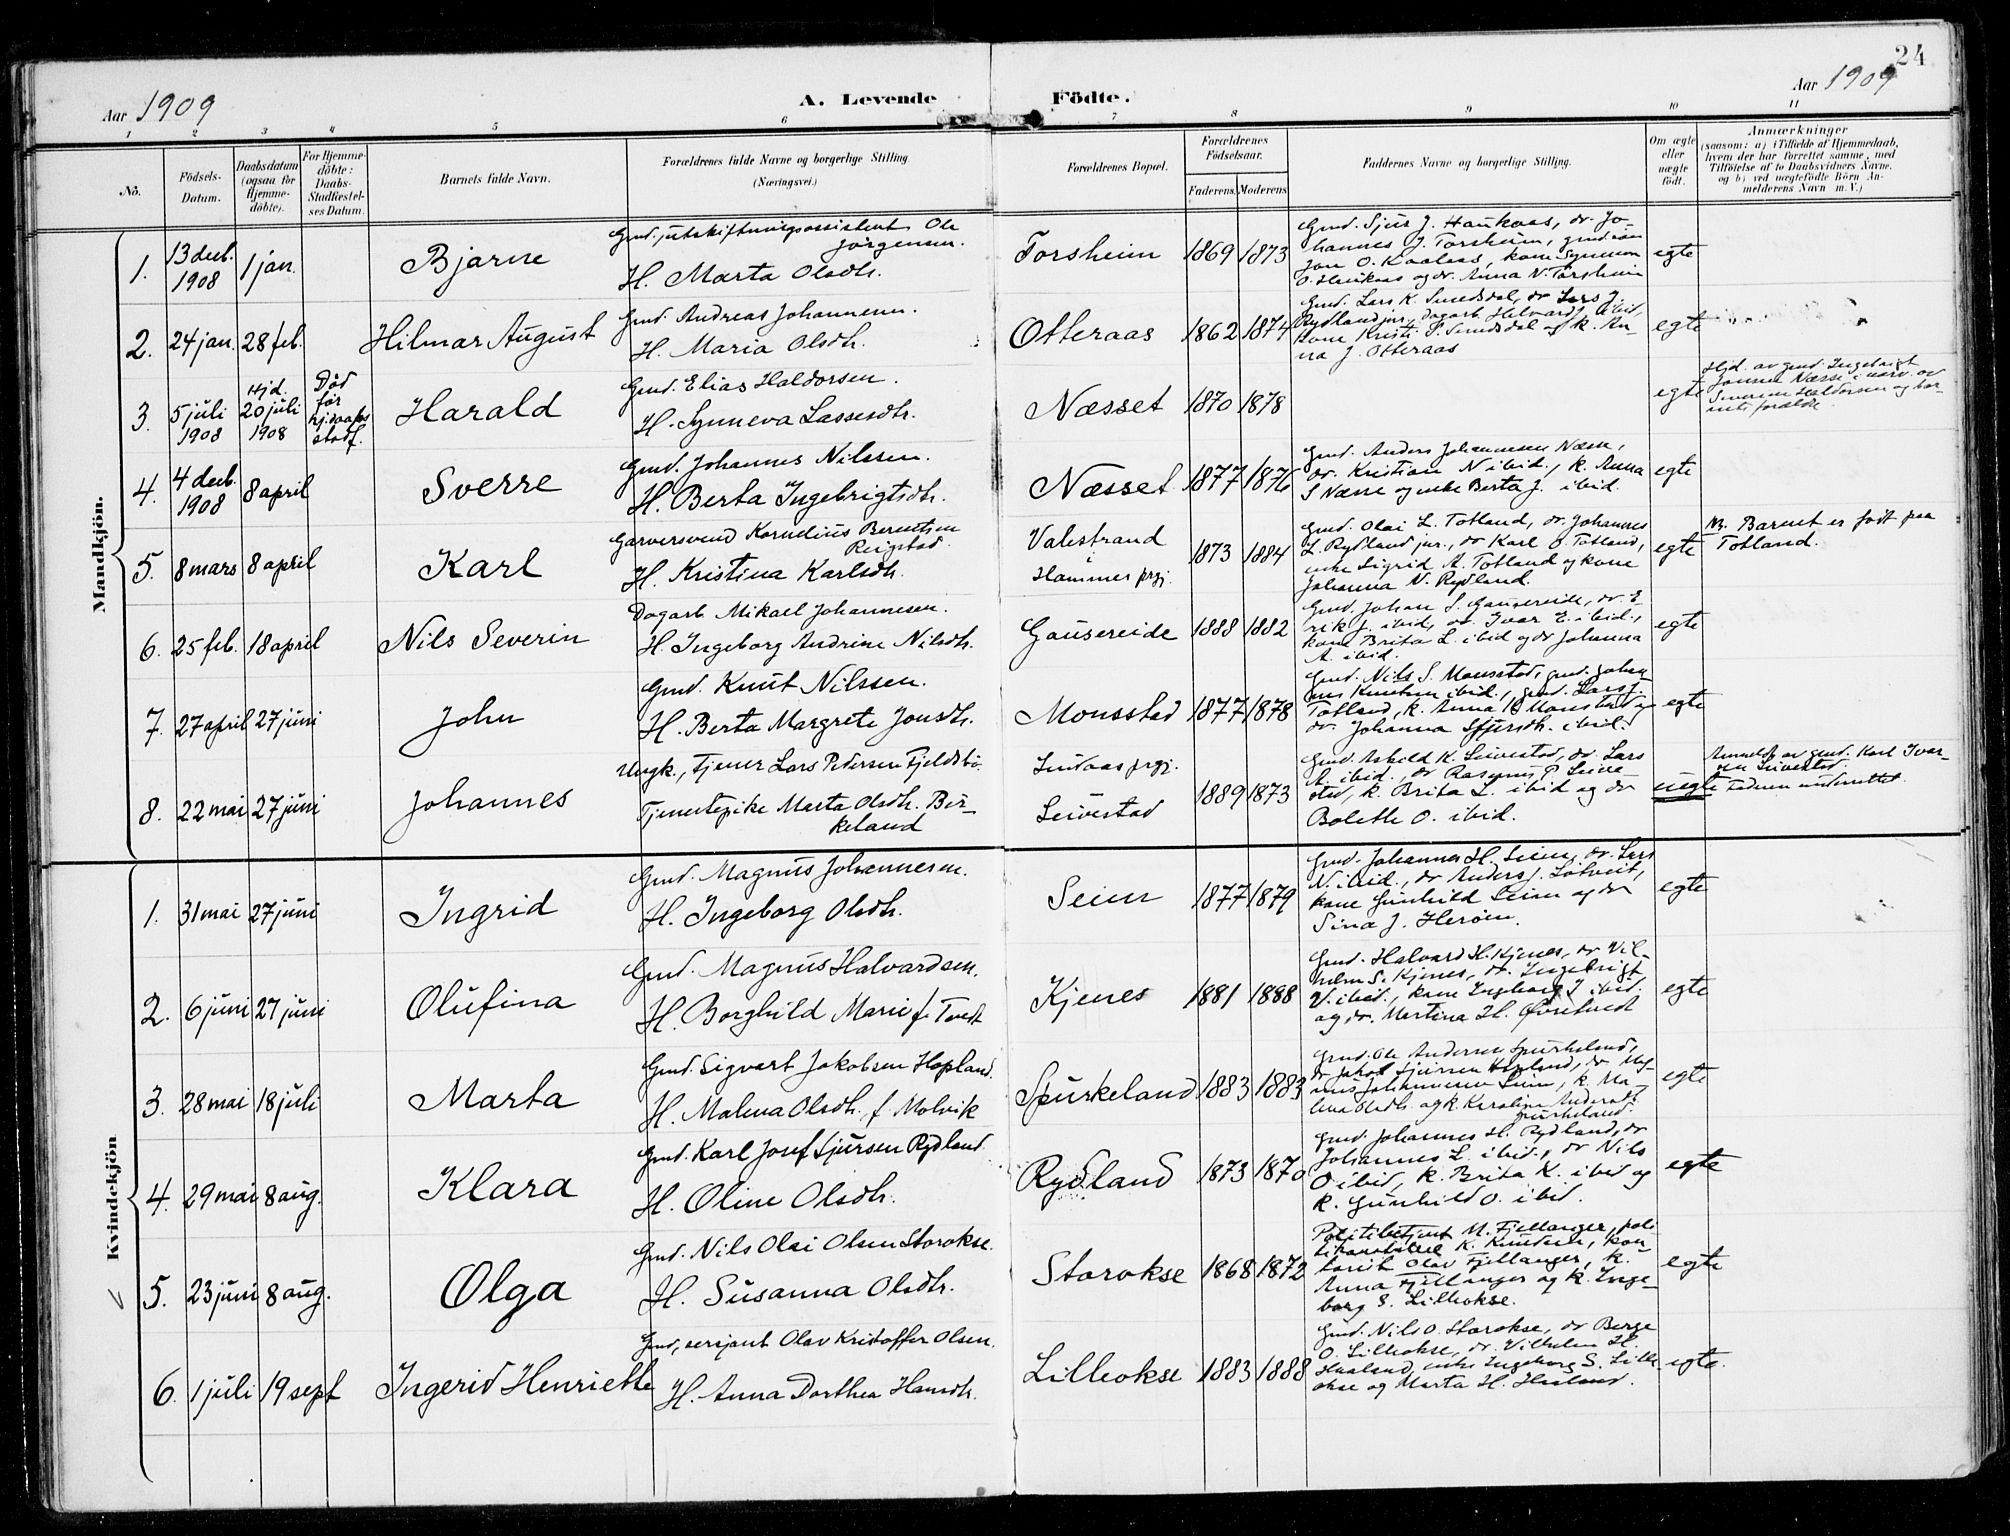 24
Aar 1909
A. Levende Födte.
Aar 1909
1 2 3 4 5 6 7 8 9 10 11
No.
Födsels-
Datum.
Daabsdatum
(ogsaa for
Hjemme-
döbte).
For Hjemme-
döbte:
Daabs-
Stadfæstel-
ses Datum.
Barnets fulde Navn.
Forældrenes fulde Navne og borgerlige Stilling.
(Næringsvei.)
Forældrenes Bopæl.
Forældrenes
Födselsaar.
Faderens. Moderens
Faddernes Navne og borgerlige Stilling.
Om ægte
eller
uægte
födt.
Anmærkninger
(saasom: a) i Tilfælde af Hjemmedaab,
hvem der har forrettet samme, med
Tilföielse af to Daabsvidners Navne.
og b) ved uægtefödte Börn An-
melderens Navn m. V.)
Mandkjön.
1.
13 decb.
1908
1 jan.
Bjarne
Gmd., utskiftningsassistent Ole
Jörgensen.
H. Marta Olsdtr.
Torsheim
1869 1873
Gmd. Sjur J. Haukaas, dr. Jo-
hannes J. Torsheim, gmd.søn
Jon O. Kaalaas, kone Synneva
O. Haukaas og dr. Anna N. Torsheim
egte
2.
24 jan.
28 feb.
Hilmar August
Gmd. Andreas Johannesen.
H. Maria Olsdtr.
Otteraas
1862 1874
Gmd. Lars K. Smedsdal, dr. Lars J.
Rydland jnr., dagarb. Halvard J. ibid,
kone Kristi P. Smedsdal og k. An-
na J. Otteraas
egte
3.
5 juli
1908
Hjd.
20 juli
1908
Död
før
hj.daabs
stadf.
Harald
Gmd. Elias Haldorsen.
H. Synneva Lassesdtr.
Næsset
1870 1878
egte
Hjd. av gmd. Ingebrigt
Jonsen Næsse i nærv. av
Severine Haldorsen og bar-
nets forældre.
4.
4 decb.
1908
8 april
Sverre
Gmd. Johannes Nilssen.
H. Berta Ingebrigtsdtr.
Næsset
1877 1876
Gmd. Anders Johannesen Næsse,
dr. Kristian N. ibid., k. Anna
S. Næsse og enke Berta J. ibid.
egte
5.
8 mars
8 april
Karl
Garversvend Kornelius Berentsen
Reigstad.
H. Kristina Karlsdtr.
Valestrand
i
Hammer prgj.
1873 1884
Gmd. Olai L. Totland, dr. Johannes
L. Rydland jnr., dr. Karl O. Totland,
enke Sigrid A. Totland og kone
Johanna N. Rydland.
egte
Nb. Barnet er födt paa
Totland.
6.
25 feb.
18 april
Nils Severin
Dagarb. Mikael Johannesen.
H. Ingeborg Andrine Nilsdtr.
Gausereide
1888 1882
Gmd. Johan S. Gausereide, dr. E-
rik J. ibid, dr. Ivar E. ibid.,
kone Brita L. ibid og dr Johanna
A. ibid.
egte
7.
27 april
27 juni
John
Gmd. Knut Nilssen.
H. Berta Margrete Jonsdtr.
Monsstad
1877 1878
Gmd. Nils S. Monsstad, gmd. Johan-
nes Knutsen ibid., gmd. Lars J.
Totland, k. Anna K. Monstad og
dr. Johanna Sjursdtr. ibid.
egte
8.
22 mai
27 juni
Johannes
Ungk., Tjener Lars Pedersen Fjeldsbö.
Tjenestepike Marta Olsdtr. Bir-
keland
Lindaas prgj.
Leivestad
1889 1873
Gmd. Askild K. Leivestad, dr. Lars
A. ibid., dr Rasmus P. Leive-
stad, k. Brita L. ibid og dr
Bolette O. ibid.
uegte
Anmeldt av gmd. Karl Ivar-
sen Leivestad.
Faderen underrettet.
Kvindekjön
1.
31 mai
27 juni
Ingrid
Gmd. Magnus Johannesen.
H. Ingeborg Olsdtr.
Seim
1877 1879
Gmd. Johannes H. Seim, dr. Lars
N. ibid., dr Anders J. Lötveit,
kone Gunhild Seim og dr
Sina J. Heröen.
egte
2.
6 juni
27 juni
Olufina
Gmd. Magnus Halvardsen.
H. Borghild Marie f. Tvedt
Kjenes
1881 1888
Gmd. Halvard H. Kjenes, dr Vil-
helm S. Kjenes, dr. Ingebrigt
V. ibid., kone Ingeborg J. ibid.
og dr. Martina H. Øvretvedt
egte
3.
28 mai
18 juli
Marta
Gmd. Sigvart Jakobsen Hopland.
H. Malena Olsdtr. f. Molvik
Spurkeland
1883 1883
Gmd. Ole Andersen Spurkeland,
dr Jakob Sjursen Hopland, dr Mag-
nus Johannesen Seim, k. Ma-
lena Olsdtr. og k. Karoline Andersdtr
Spurkeland.
egte
4.
29 mai
8 aug.
Klara
Gmd. Karl Josef Sjursen Rydland.
H. Oline Olsdtr.
Rydland
1873 1870
Gmd. Johannes H. Rydland, dr
Johannes L. ibid., dr Nils
O ibid, k. Brita K. ibid og
k. Gunhild O. ibid.
egte
5.
23 juni
8 aug.
Olga
Gmd. Nils Olai Olsen Storokse.
H. Susanna Olsdtr.
Storokse
1868 1872
Politibetjent M. Fjellanger, poli-
tikonstabel K. Knudsen, kon-
torist Olav Fjellanger, k.
Anna Fjellanger og k. Inge-
borg S. Lilleokse.
egte
6.
1 juli
19 sept
Ingerid Henriette
Gmd., serjant Olav Kristoffer Olsen.
H. Anna Dorthea Hansdtr.
Lilleokse
1883 1888
Gmd. Nils O. Storokse, dr Berge
O. Lilleokse, dr. Vilhelm H.
Husland, enke Ingeborg S. Lille-
okse og Marta H. Husland.
egte.